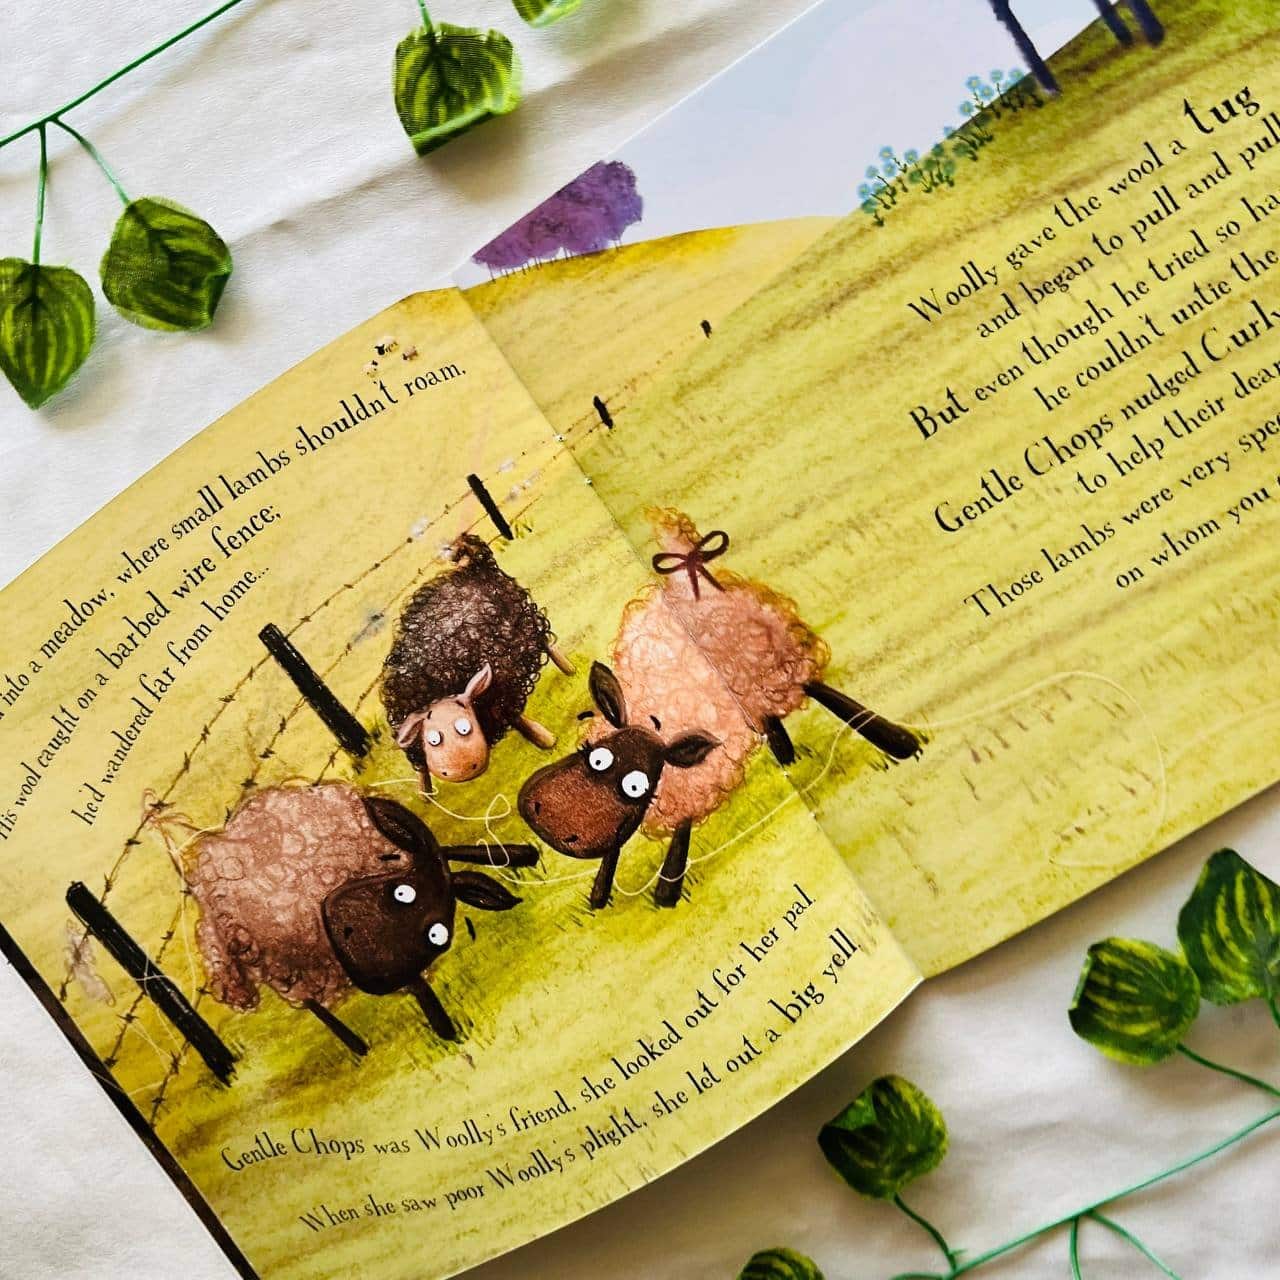 into a meadow, where small lambs shouldn't roam.
His wool caught on a barbed wire fence;
he'd wandered far from home...
Gentle Chops was Woolly's friend, she looked out for her pal.
When she saw poor Woolly's plight, she let out a big yell.
Woolly gave the wool a tug
and began to pull and pull
But even though he tried so
he couldn't untie the
Gentle Chops nudged Curly
to help their dear
Those lambs were very
on whom you